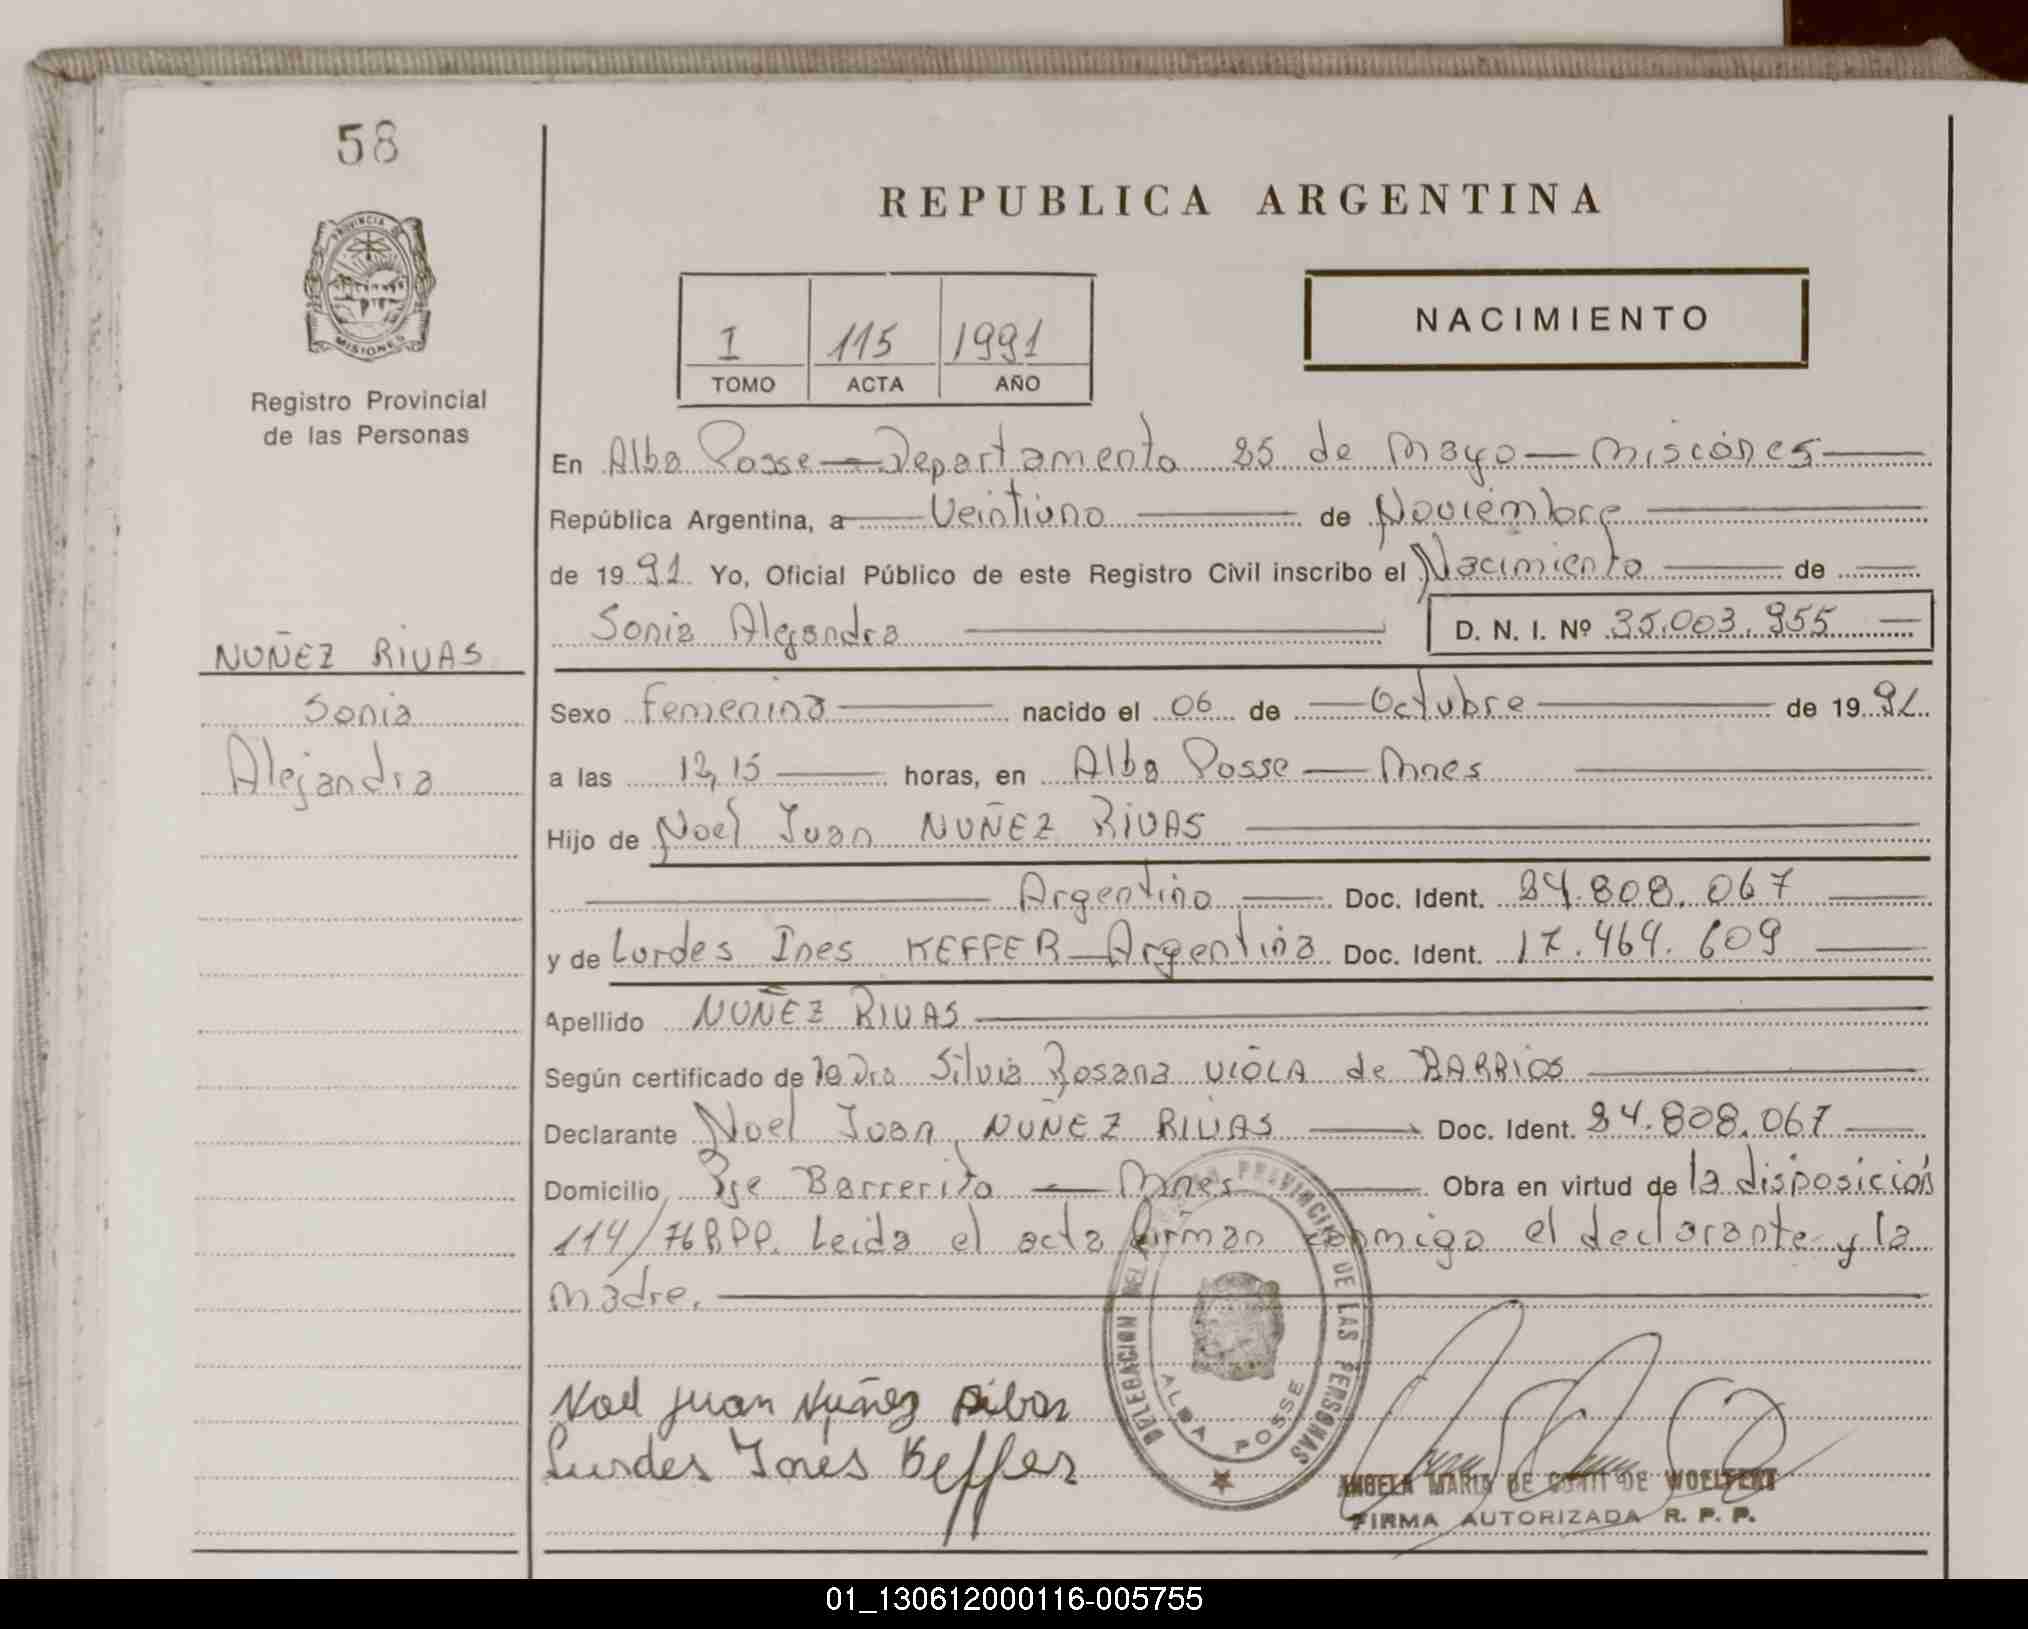 58
REPUBLICA ARGENTINA
PROVINCIA DE
MISIONES
Registro Provincial
de las Personas
I 115 1991
TOMO ACTA AÑO
NACIMIENTO
En Alba Posse — Departamento 25 de Mayo — Misiones —
República Argentina, a — Veintiuno — de Noviembre —
de 1991. Yo, Oficial Público de este Registro Civil inscribo el Nacimiento — de —
Sonia Alejandra — D. N. I. Nº 35.003.955 —
NUÑEZ RIVAS
Sonia
Alejandra
Sexo Femenino — nacido el 06 de — Octubre — de 1991.
a las 12,15 — horas, en Alba Posse — Mnes —
Hijo de Noel Juan NUÑEZ RIVAS —
— Argentino — Doc. Ident. 24.808.067 —
y de Lurdes Ines KEFFER — Argentina Doc. Ident. 17.464.609 —
Apellido NUÑEZ RIVAS —
Según certificado de la Dra Silvia Rosana VIOLA de BARRIOS —
Declarante Noel Juan NUÑEZ RIVAS — Doc. Ident. 24.808.067 —
Domicilio Pje Barrerito — Mnes — Obra en virtud de la disposición
114/76 R.P.P. Leida el acta firman conmigo el declarante y la
madre. —
DELEGACION DEL REGISTRO PROVINCIAL DE LAS PERSONAS
ALBA POSSE
Noel Juan Nuñez Ribas
Lurdes Ines Keffer
ANGELA MARIA DE CONTI DE WOELFERT
FIRMA AUTORIZADA R. P. P.
01_130612000116-005755